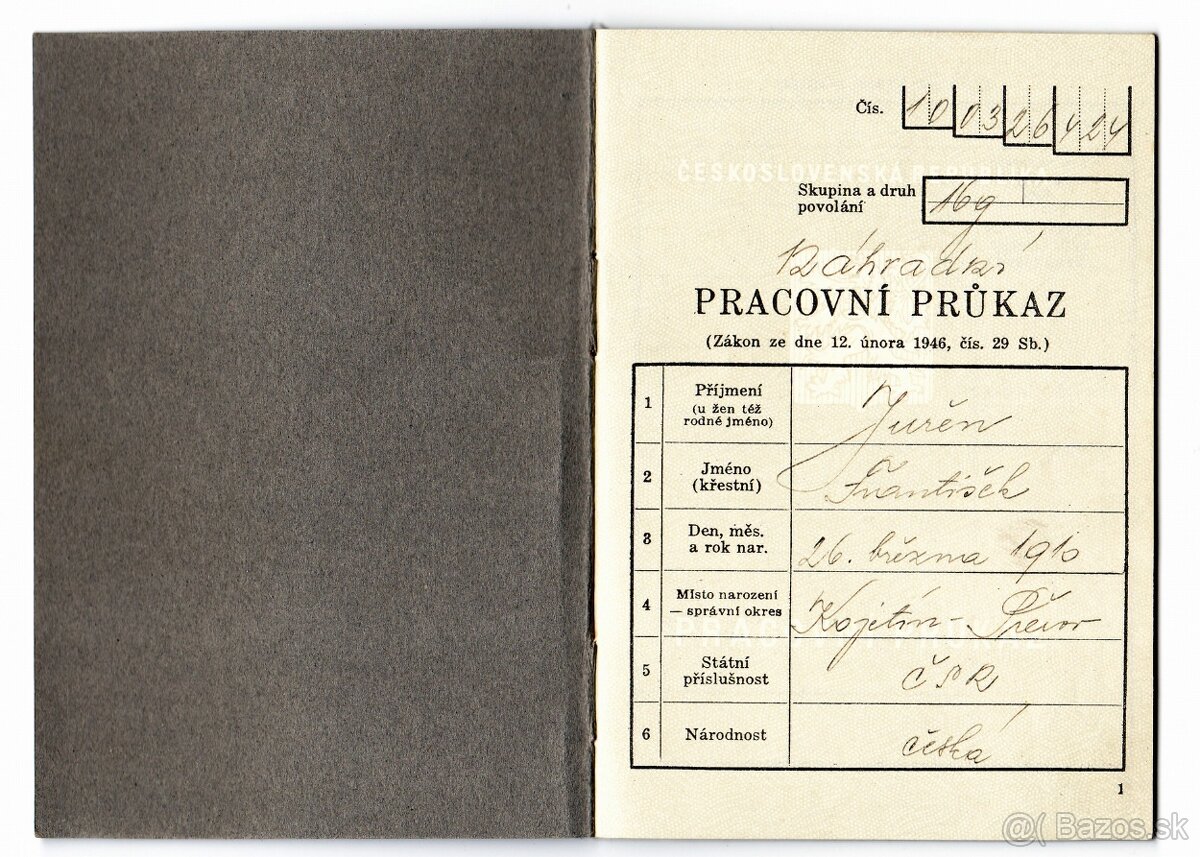 Čís. 10 03 26 424
ČESKOSLOVENSKÁ REPUBLIKA
Skupina a druh povolání 16g
Náhradní
PRACOVNÍ PRŮKAZ
(Zákon ze dne 12. února 1946, čís. 29 Sb.)
1 Příjmení (u žen též rodné jméno) Juřén
2 Jméno (křestní) František
3 Den, měs. a rok nar. 26. března 1910
4 Místo narození — správní okres Kojetín - Přerov
PRACOVNÍ PRŮKAZ
5 Státní příslušnost ČSR
6 Národnost česká
1
@( Bazos.sk